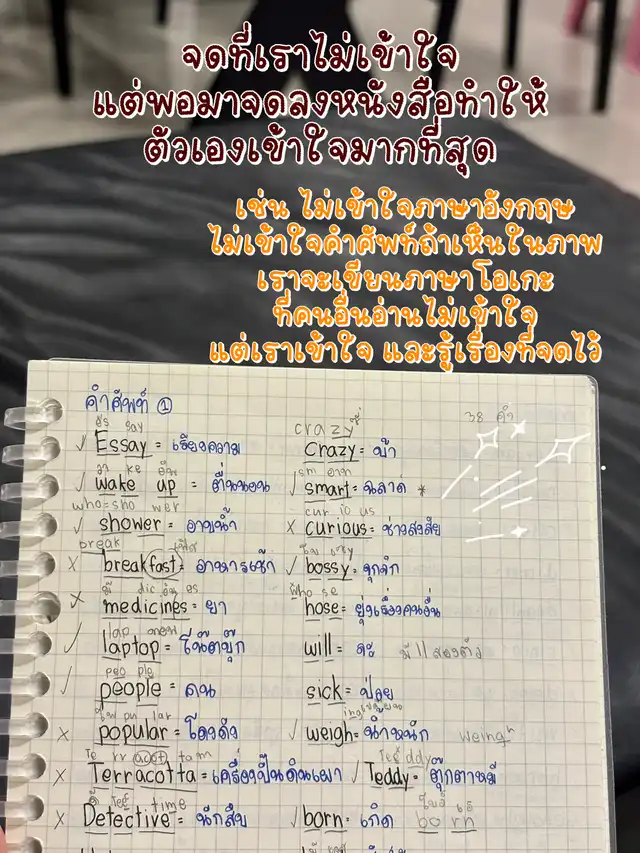 จดที่เราไม่เข้าใจ
แต่พอมาจดลงหนังสือทำให้
ตัวเองเข้าใจมากที่สุด
เช่น ไม่เข้าใจภาษาอังกฤษ
ไม่เข้าใจคำศัพท์ถ้าเห็นในภาพ
เราจะเขียนภาษาโอเกะ
ที่คนอื่นอ่านไม่เข้าใจ
แต่เราเข้าใจ และรู้เรื่องที่จดไว้
คำศัพท์ ①
38 คำ
say
Essay = เรียงความ
ke
wake up = ตื่นนอน
who=sho wer
shower = อาบน้ำ
break
breakfast = อาหารเช้า
dic
medicines = ยา
lap
laptop = โน๊ตบุ๊ก
peo ple
people = คน
pu lar
popular = โด่งดัง
Te rr acot tam
Terracotta = เครื่องปั้นดินเผา
time
Detective = นักสืบ
crazy
crazy = บ้า
sm
smart = ฉลาด *
cur io us
curious = ช่างสงสัย
bossy = จุกจิก
who se
hose = ยุ่งเรื่องคนอื่น
will = จะ มี ll สองตัว
sick = ป่วย
weigh = น้ำหนัก weingh
Teddy
Teddy = ตุ๊กตาหมี
born = เกิด born